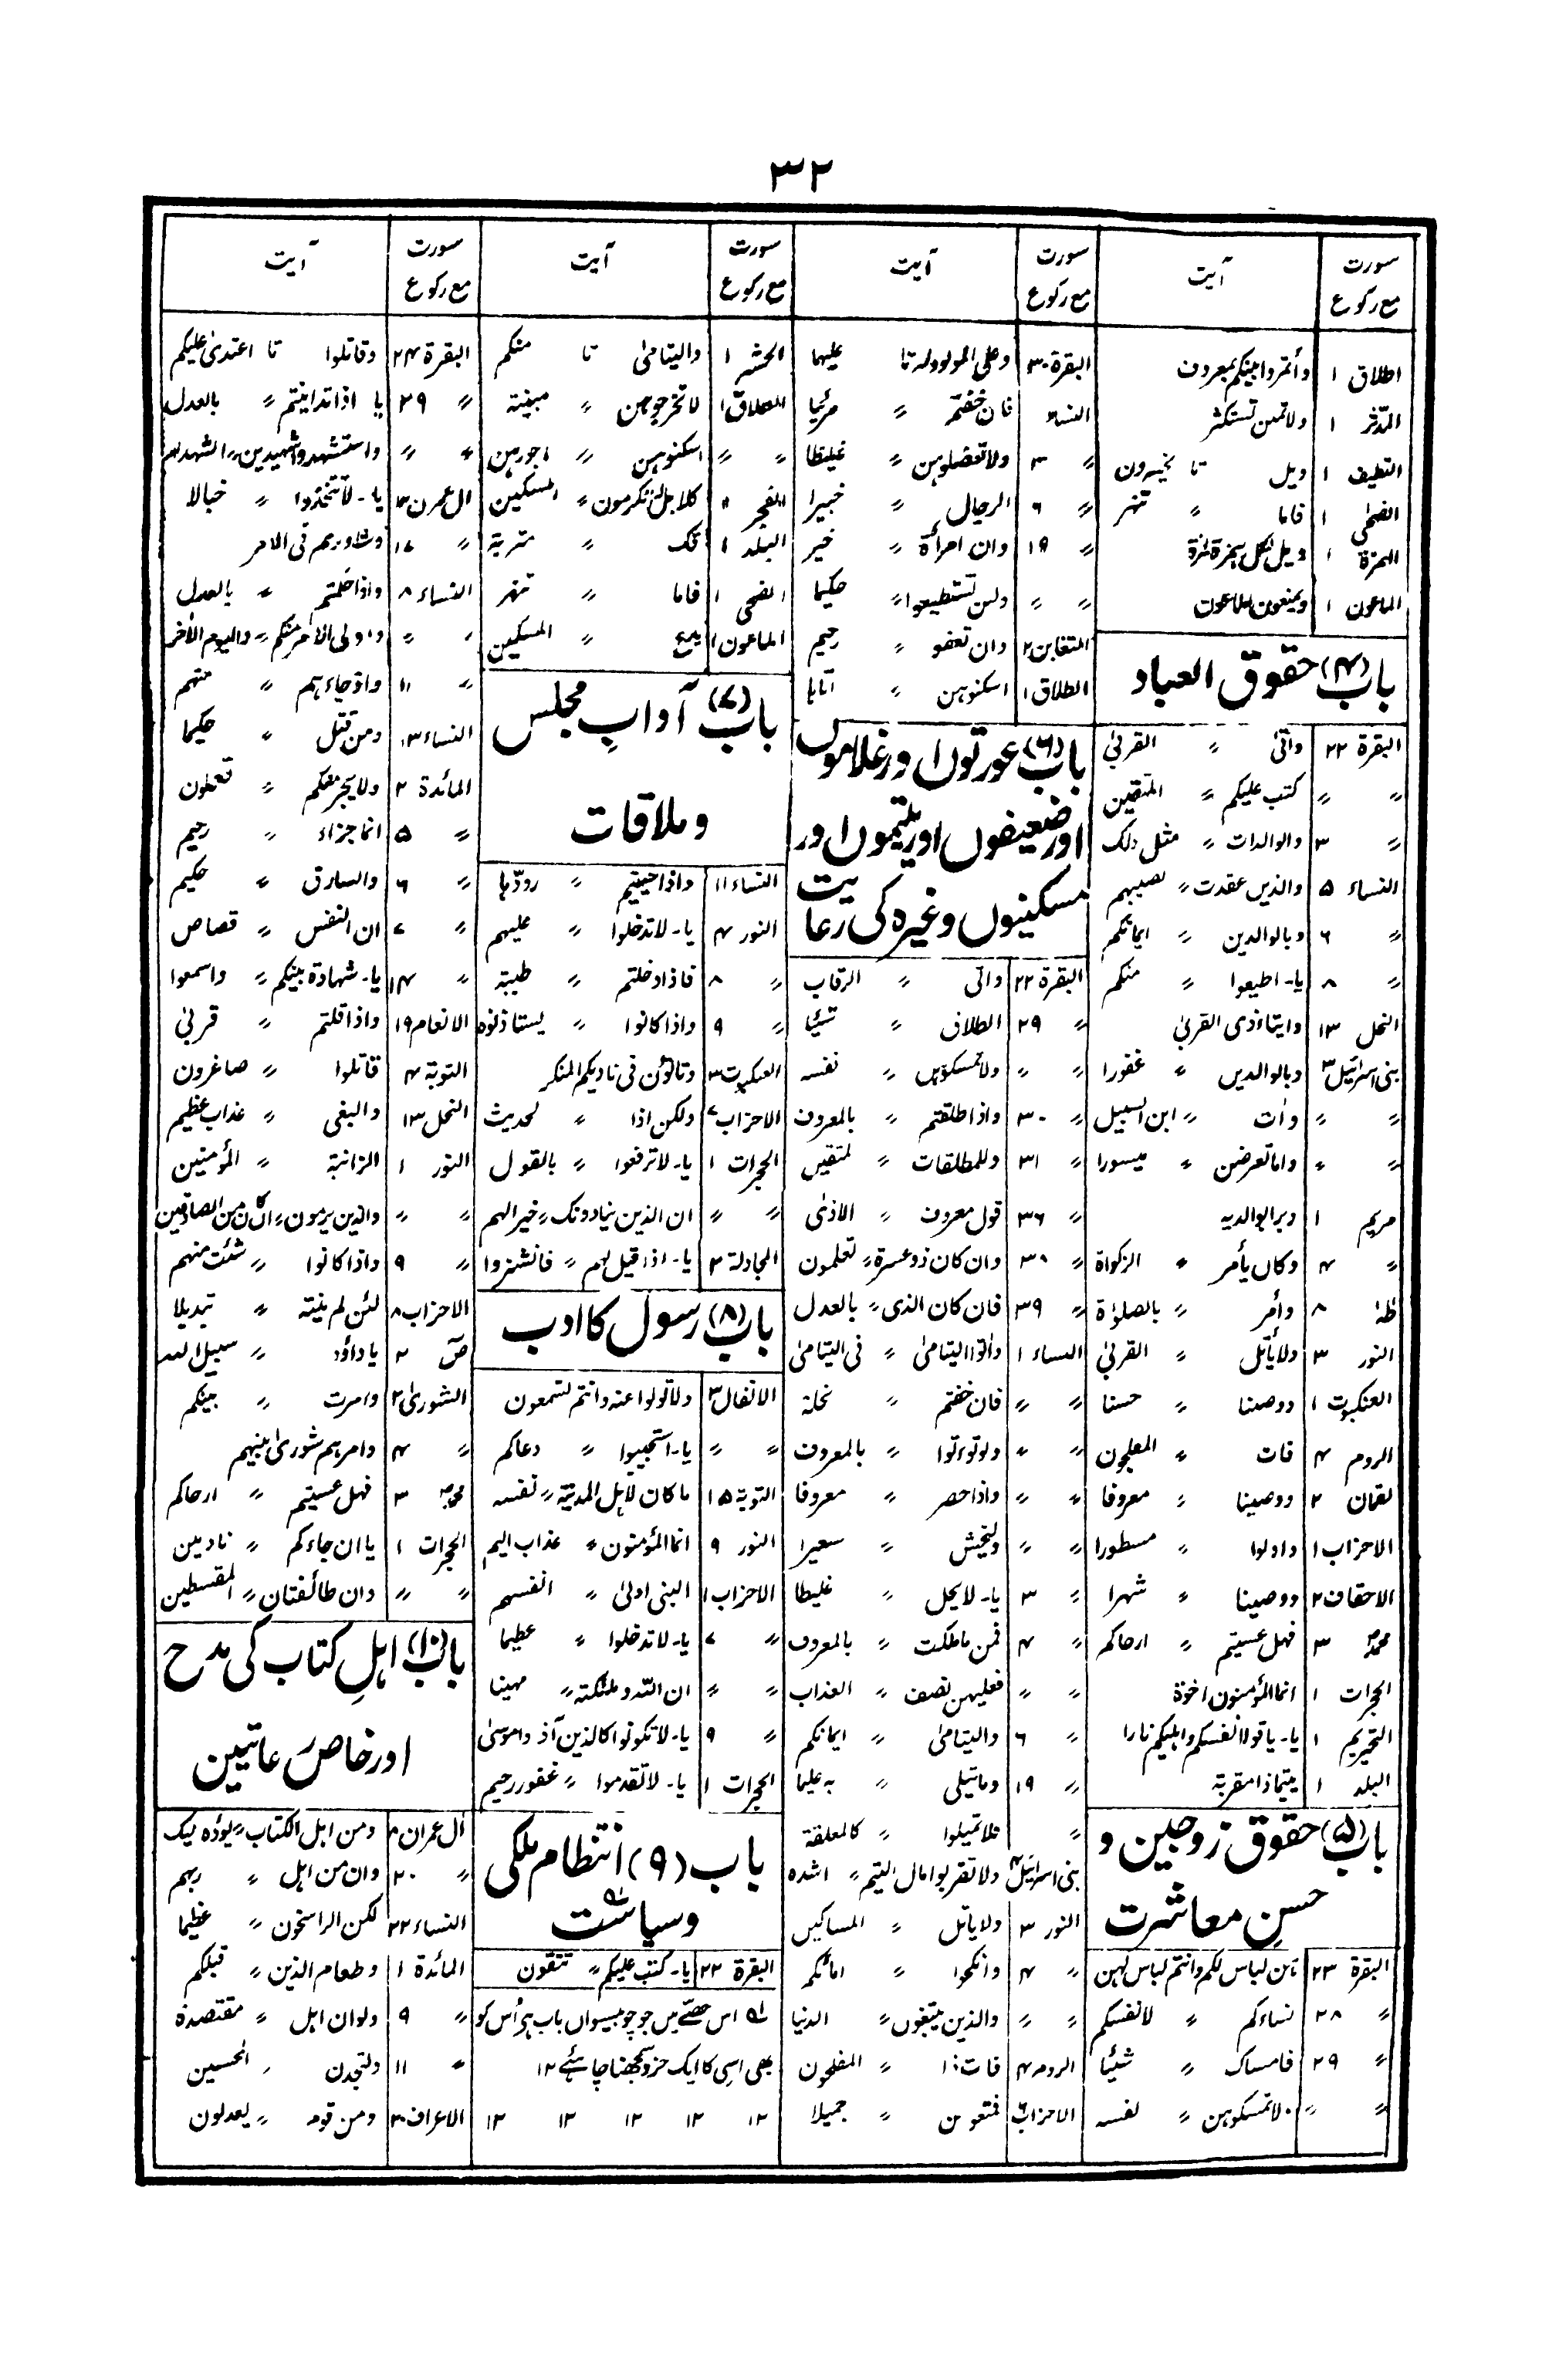 ۳۲
سورت مع رکوع آیت
اطلاق ۱ وأتمروا بینکم بمعروف
المدّثر ۱ ولا تمنن تستکثر
التطیف ۱ ویل تا یخسرون
الضحٰی ۱ فاما 〃 تنهر
الهمزة ۱ ویل لکل همزة لمزة
الماعون ۱ ویمنعون الماعون
باب (۴) حقوق العباد
البقرة ۲۲ واٰتی 〃 القربیٰ
〃 〃 کتب علیکم 〃 المتقین
〃 ۳۰ والوالدات 〃 مثل ذلک
النساء ۵ والذین عقدت 〃 نصیبهم
〃 ۶ وبالوالدین 〃 ایمانکم
〃 ۸ یا۔ اطیعوا 〃 منکم
النحل ۱۳ وایتاء ذی القربیٰ
بنی اسرائیل ۳ وبالوالدین 〃 غفورا
〃 〃 واٰت 〃 ابن السبیل
〃 〃 واما تعرضن 〃 میسورا
مریم ۱ وبرا بوالدیه
〃 ۴ وکان یأمر 〃 الزکواة
طٰهٰ ۸ وأمر 〃 بالصلوٰة
النور ۳ ولا یأتل 〃 القربیٰ
العنکبوت ۱ ووصینا 〃 حسنا
الروم ۴ فات 〃 المفلحون
لقمان ۲ ووصینا 〃 معروفا
الاحزاب ۱ واولوا 〃 مسطورا
الاحقاف ۲ ووصینا 〃 شهرا
محمدؐ ۳ فهل عسیتم 〃 ارحاکم
الحجرات ۱ انما المؤمنون اخوة
التحریم ۱ یا۔ یا قوا انفسکم واهلیکم نارا
البلد ۱ یتیما ذا مقربة
باب (۵) حقوق زوجین و
حسنِ معاشرت
البقرة ۲۳ هن لباس لکم وانتم لباس لهن
〃 ۲۸ نساءکم 〃 لانفسکم
〃 ۲۹ فامساک 〃 شیئا
〃 〃 ولا تمسکوهن 〃 نفسه
سورت مع رکوع آیت
البقرة ۳۰ وعلی المولود له تا علیها
النساء فان خفتم 〃 مرئیا
〃 ۳ ولا تعضلوهن 〃 غلیظا
〃 ۶ الرجال 〃 خبیرا
〃 ۱۹ وان امرأة 〃 خیر
〃 〃 ولن تستطیعوا 〃 حکیما
التغابن ۲ وان تعفو 〃 رحیم
الطلاق ۱ اسکنوهن 〃 اتاها
باب (۶) عورتوں اور غلاموں
اور ضعیفوں اور یتیموں اور
مسکینوں وغیرہ کی رعایت
البقرة ۲۲ واٰتی 〃 الرقاب
〃 ۲۹ الطلاق 〃 شیئا
〃 〃 ولا تمسکوهن 〃 نفسه
〃 ۳۰ واذا طلقتم 〃 بالمعروف
〃 ۳۱ وللمطلقات 〃 لمتقین
〃 ۳۶ قول معروف 〃 الاذیٰ
〃 ۳۸ وان کان ذو عسرة 〃 تعلمون
〃 ۳۹ فان کان الذی 〃 بالعدل
النساء ۱ واٰتوا الیتامیٰ 〃 فی الیتامیٰ
〃 〃 فان خفتم 〃 نحلة
〃 〃 ولا توءتوا 〃 بالمعروف
〃 〃 واذا حضر 〃 معروفا
〃 〃 ولیخش 〃 سعیرا
〃 ۳ یا۔ لا یحل 〃 غلیظا
〃 ۴ فمن ما ملکت 〃 بالمعروف
〃 〃 فعلیهن نصف 〃 العذاب
〃 ۶ والیتامیٰ 〃 ایمانکم
〃 ۱۹ وما یتلی 〃 به علیما
〃 فلا تمیلوا 〃 کالمعلقة
بنی اسرائیل ۴ ولا تقربوا مال الیتیم 〃 اشده
النور ۳ ولا یاتل 〃 المساکین
〃 ۴ وانکحوا 〃 امائکم
〃 〃 والذین یبتغون 〃 الدنیا
الروم ۴ فات ذا 〃 المفلحون
الاحزاب ۶ فمتعوهن 〃 جمیلا
سورت مع رکوع آیت
الحشر ۱ والیتامیٰ تا منکم
الطلاق ۱ لا تخرجوهن 〃 مبینة
〃 〃 اسکنوهن 〃 اجورهن
الفجر 〃 کلا بل لا تکرمون 〃 المسکین
البلد ۱ فک 〃 متربة
الضحی ۱ فاما 〃 تنهر
الماعون ۱ یدع 〃 المسکین
باب (۷) آدابِ مجلس
و ملاقات
النساء ۱۱ واذا حییتم 〃 ردّوها
النور ۴ یا۔ لا تدخلوا 〃 علیهم
〃 ۸ فاذا دخلتم 〃 طیبة
〃 ۹ واذا کانوا 〃 یستاذنوه
العنکبوت ۳ وتاتون فی نادیکم المنکر
الاحزاب ۷ ولکن اذا 〃 لحدیث
الحجرات ۱ یا۔ لا ترفعوا 〃 بالقول
〃 〃 ان الذین ینادونک 〃 خیرا لهم
المجادلة ۲ یا۔ اذا قیل لهم 〃 فانشزوا
باب (۸) رسول کا ادب
الانفال ۳ ولا تولوا عنه وانتم تسمعون
〃 〃 یا۔ استجیبوا 〃 دعاکم
التوبة ۱۵ ما کان لاهل المدینة 〃 نفسه
النور ۹ انما المؤمنون 〃 عذاب الیم
الاحزاب ۱ النبی اولیٰ 〃 انفسهم
〃 ۷ یا۔ لا تدخلوا 〃 عظیما
〃 〃 ان الله وملئکته 〃 مهینا
〃 ۹ یا۔ لا تکونوا کالذین آذوا موسیٰ
الحجرات ۱ یا۔ لا تقدموا 〃 غفور رحیم
باب (۹) انتظام ملکی
و سیاست لہ
البقرة ۲۲ یا۔ کتب علیکم 〃 تتقون
لہ اس حصّے میں جو چوبیسواں باب ہے اُس کو
بھی اسی کا ایک جزو سمجھنا چاہئے ۱۲
۱۲ ۱۲ ۱۲ ۱۲ ۱۲
سورت مع رکوع آیت
البقرة ۲۴ وقاتلوا تا اعتدیٰ علیکم
〃 ۳۹ یا اذا تداینتم 〃 بالعدل
〃 〃 واستشهدوا شهیدین 〃 الشهداء
ال عمرن ۱۲ یا۔ لا تتخذوا 〃 خبالا
〃 ۱۷ وشاورهم فی الامر
النساء ۸ واذا حکمتم 〃 بالعدل
〃 〃 واولی الامر منکم 〃 والیوم الاٰخر
〃 ۱۱ واذ جاءهم 〃 منهم
النساء ۱۳ ومن قتل 〃 حکیما
المائدة ۲ ولا یجرمنکم 〃 تعملون
〃 ۵ انما جزاء 〃 رحیم
〃 ۶ والسارق 〃 حکیم
〃 ۷ ان النفس 〃 قصاص
〃 ۱۴ یا۔ شهادة بینکم 〃 واسمعوا
الانعام ۱۹ واذا قلتم 〃 قربیٰ
التوبة ۴ قاتلوا 〃 صاغرون
النحل ۱۳ والبغی 〃 عذاب عظیم
النور ۱ الزانیة 〃 المؤمنین
〃 〃 والذین یرمون 〃 ان کان من الصادقین
〃 ۹ واذا کانوا 〃 شئت منهم
الاحزاب ۸ لئن لم ینته 〃 تبدیلا
صٓ ۲ یا داؤد 〃 سبیل الله
الشوریٰ ۲ وامرت 〃 بینکم
〃 ۴ وامرهم شوریٰ بینهم
محمدؐ ۳ فهل عسیتم 〃 ارحاکم
الحجرات ۱ یا ان جاءکم 〃 نادمین
〃 〃 وان طائفتان 〃 المقسطین
باب (۱۰) اہلِ کتاب کی مدح
اور خاص رعایتیں
اٰل عمران ۸ ومن اهل الکتاب 〃 یؤده لیک
〃 ۲۰ وان من اهل 〃 ربهم
النساء ۲۲ لکن الراسخون 〃 عظیما
المائدة ۱ وطعام الذین 〃 قبلکم
〃 ۹ ولو ان اهل 〃 مقتصدة
〃 ۱۱ ولتجدن 〃
الاعراف ۲۰ ومن قوم 〃 یعدلون